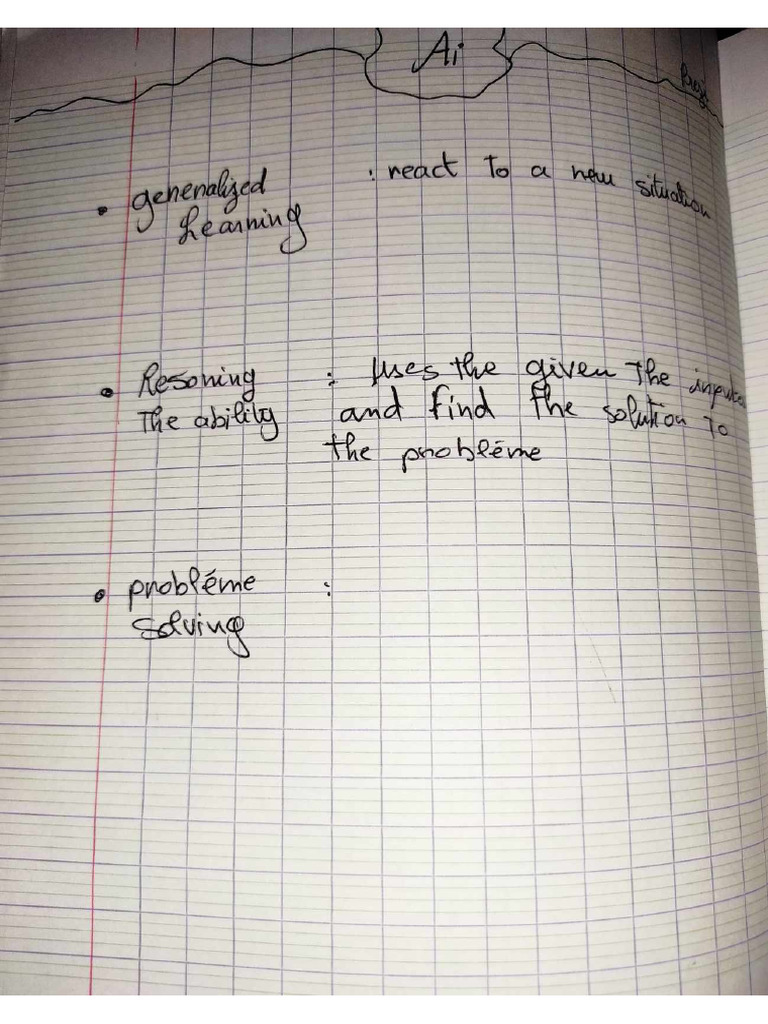 Ai
• generalized : react to a new situation
Learning
• Resoning : uses the given the inputes
The ability and find the solution to
the probléme
• probléme :
solving